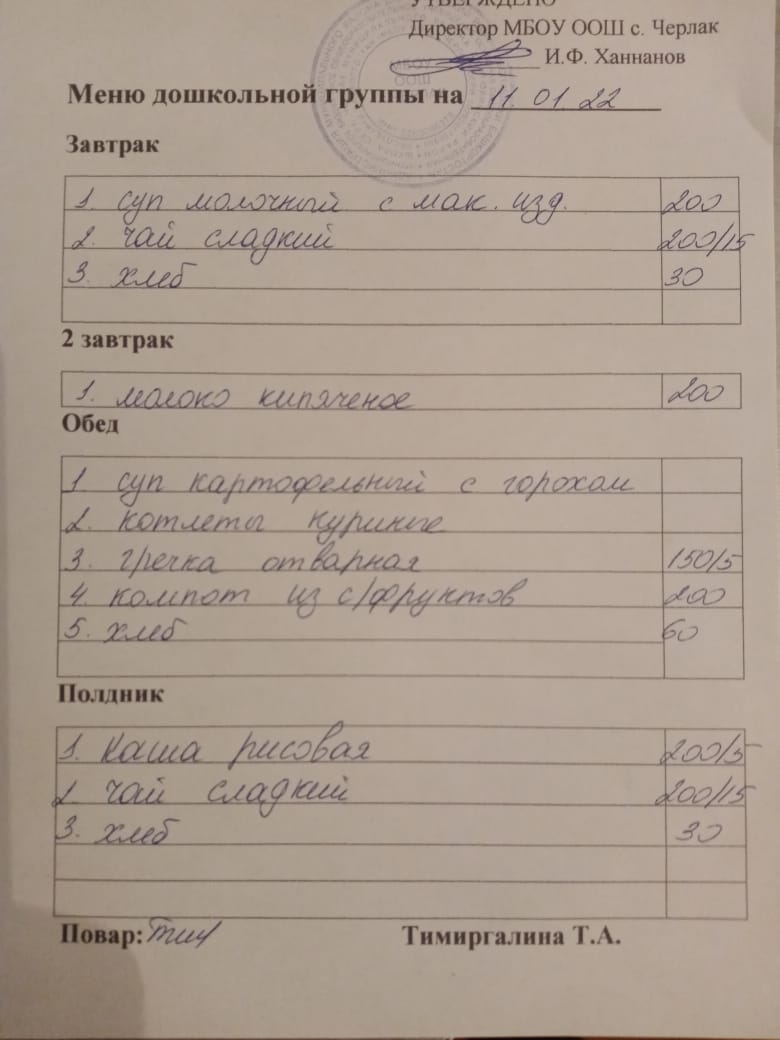 УТВЕРЖДЕНО
Директор МБОУ ООШ с. Черлак
И.Ф. Ханнанов
Меню дошкольной группы на 11. 01. 22
Завтрак
1. суп молочный с мак. изд. 200
2. чай сладкий 200/15
3. хлеб 30
2 завтрак
1. молоко кипяченое 200
Обед
1 суп картофельный с горохом
2. котлеты куриные
3. гречка отварная 150/5
4. компот из с/фруктов 200
5. хлеб 60
Полдник
1. каша рисовая 200/5
2 чай сладкий 200/15
3. хлеб 30
Повар: Тимиргалина Т.А.